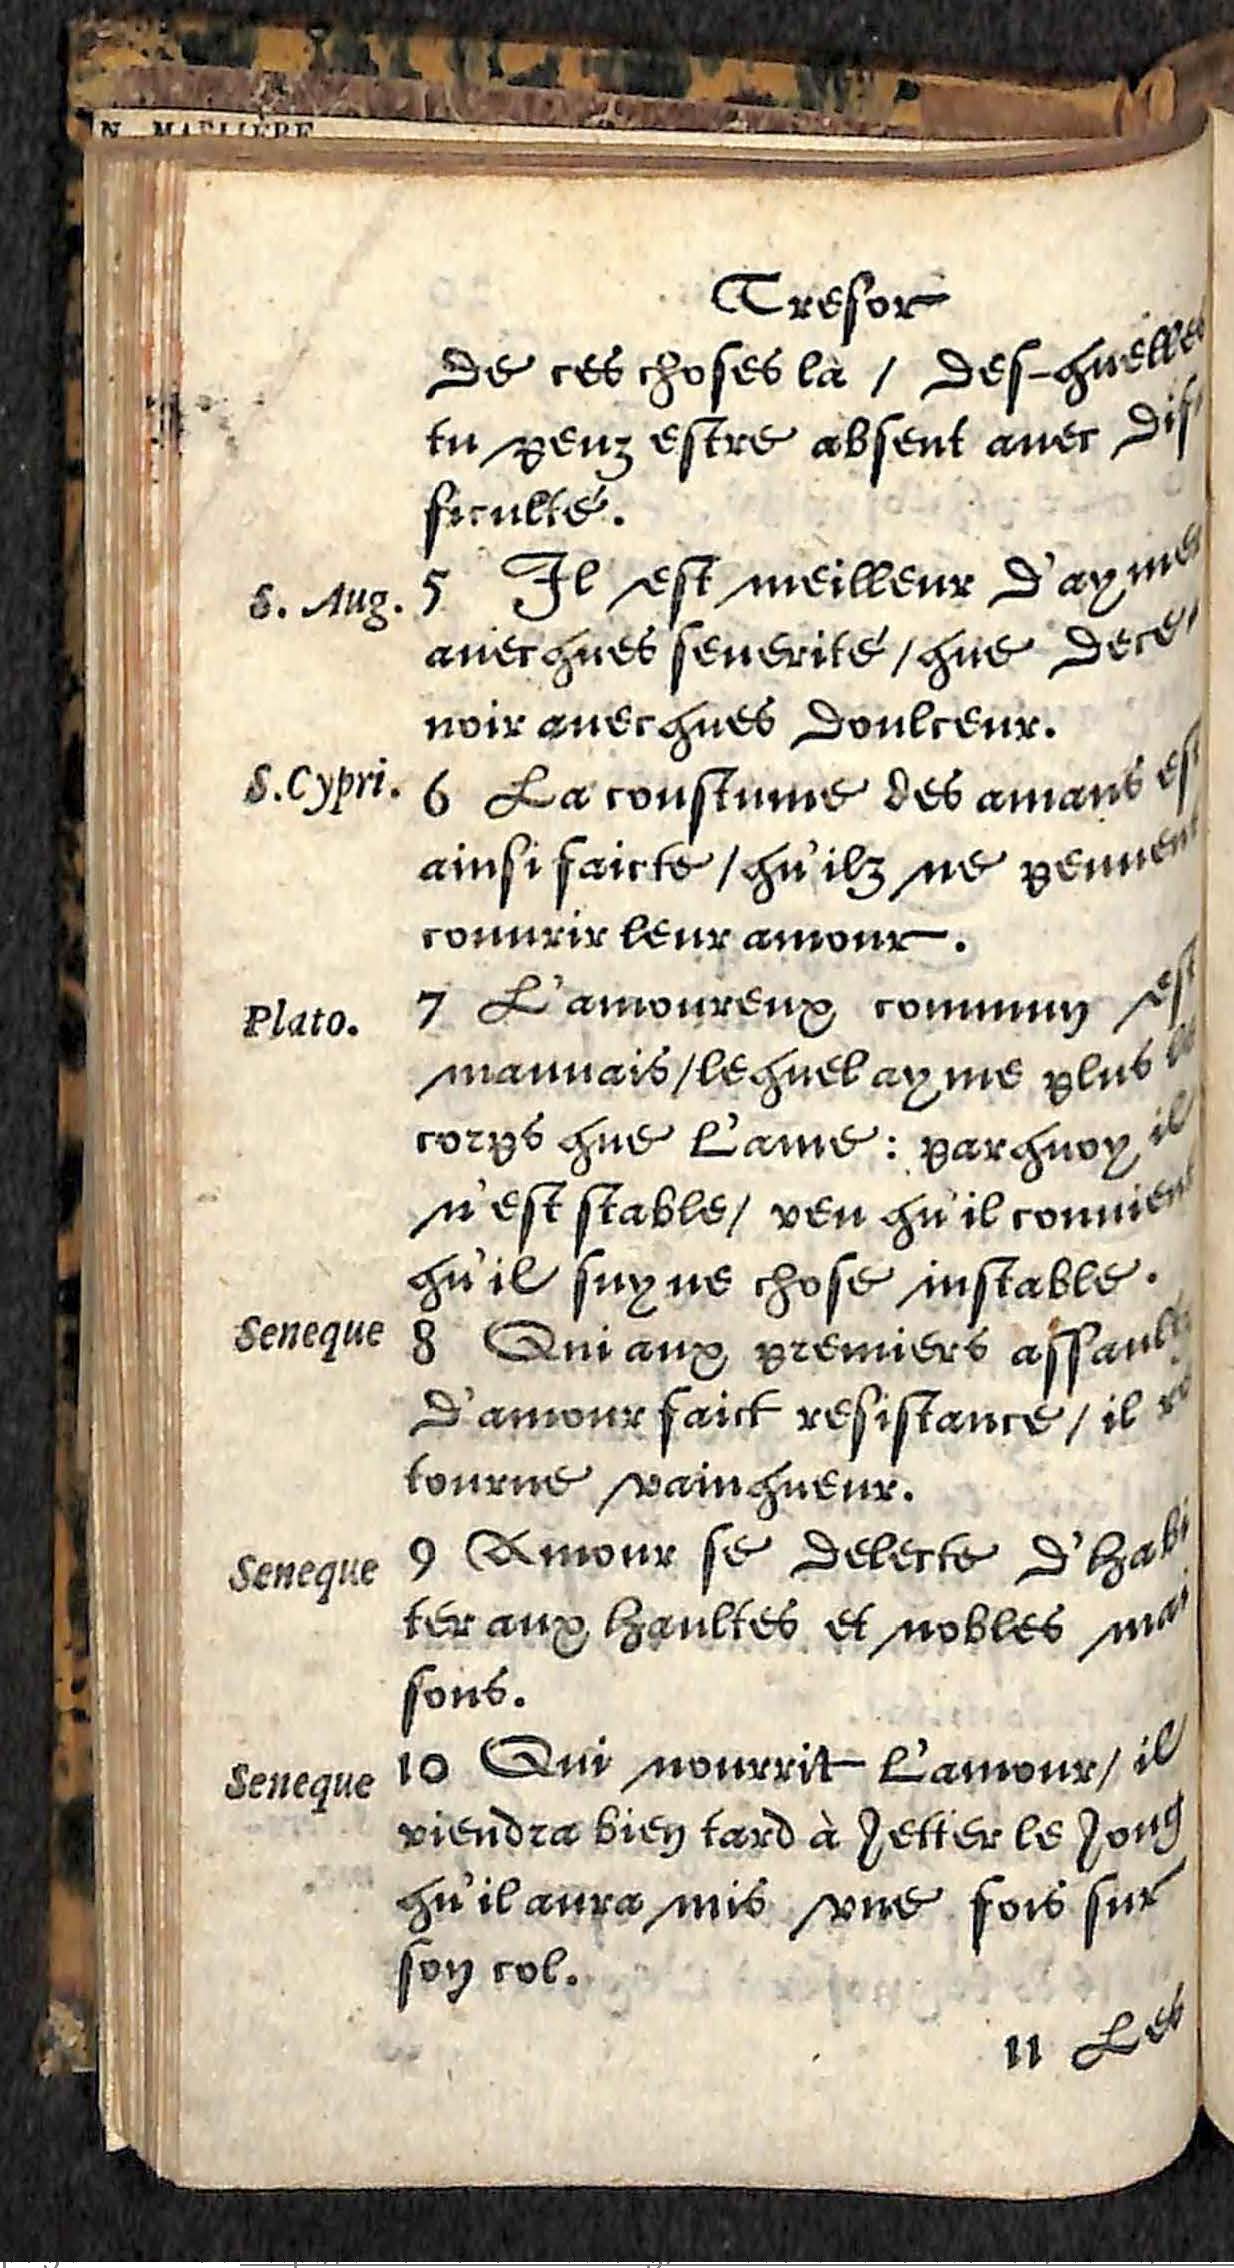 Tresor
de ces choses là / des-quelles
tu peuz estre absent auec dif-
ficulté.
S. Aug. 5 Il est meilleur d'aymer
auecques seuerité / que dece-
uoir auecques doulceur.
S. Cypri. 6 La coustume des amans est
ainsi faicte / qu'ilz ne peuuent
couurir leur amour.
Plato. 7 L'amoureux commun est
mauuais / lequel ayme plus le
corps que l'ame : parquoy il
n'est stable / veu qu'il conuient
qu'il suyue chose instable.
Seneque 8 Qui aux premiers assaultz
d'amour faict resistance / il re
tourne vainqueur.
Seneque 9 Amour se delecte d'habi
ter aux haultes et nobles mai
sons.
Seneque 10 Qui nourrit l'amour / il
viendra bien tard à Jetter le Joug
qu'il aura mis vne fois sur
son col.
11 Les